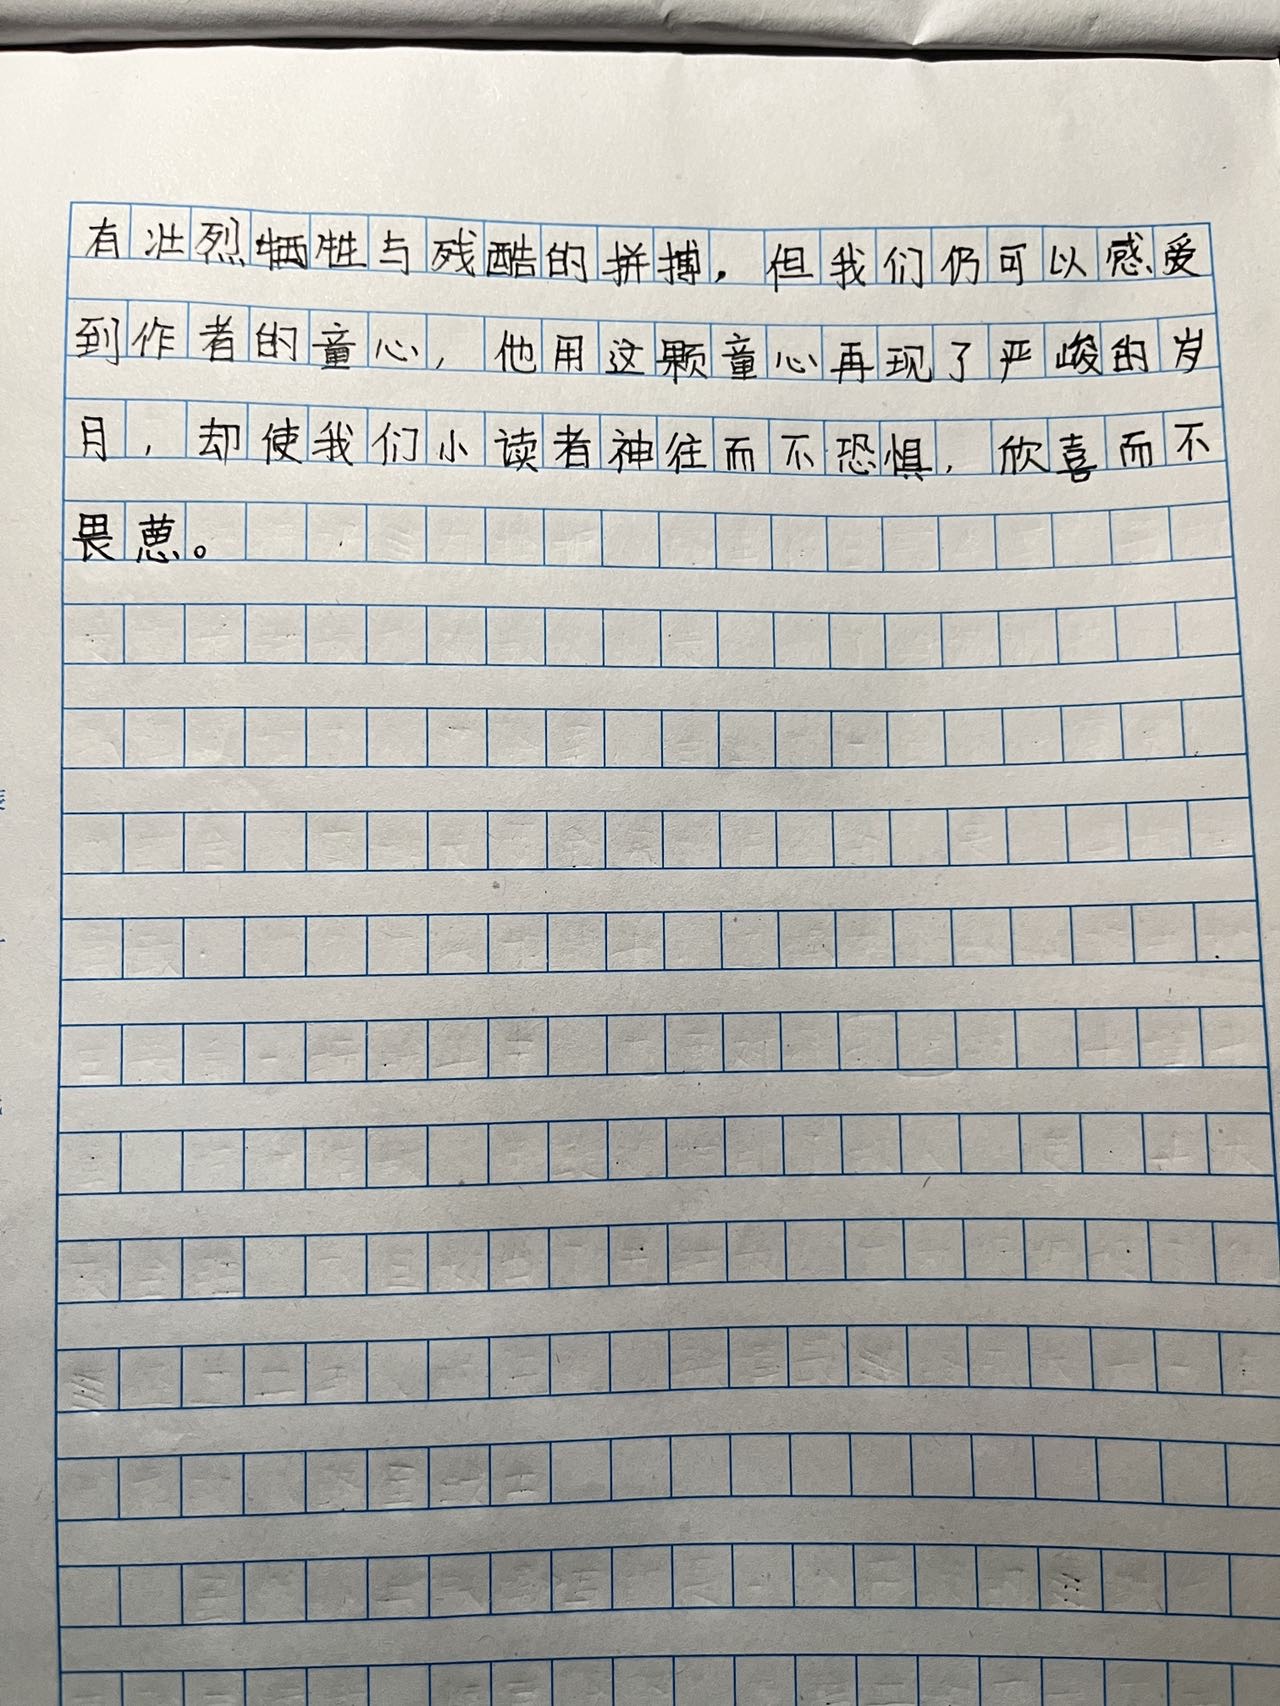 有壮烈牺牲与残酷的拼搏，但我们仍可以感爱
到作者的童心，他用这颗童心再现了严峻的岁
月，却使我们小读者神往而不恐惧，欣喜而不
畏葸。